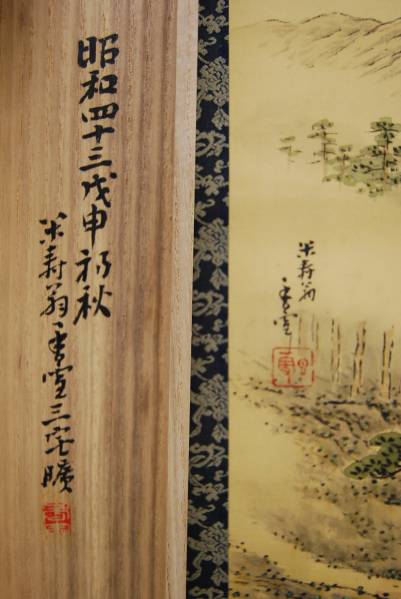 昭和四十三戊申初秋
米寿翁香雲三宅曠
米寿翁
香雲